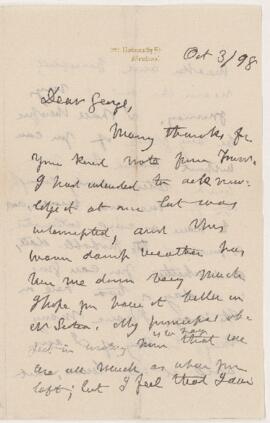 Oct 3/98
Dear George,
Many thanks for
your kind note from
I had intended to acknow-
ledge it at once but was
interrupted, and this
warm damp weather has
me down very much
I hope you have it better in
My principal ob-
ject in now is that we
are all much as when you
left; but I feel that I am